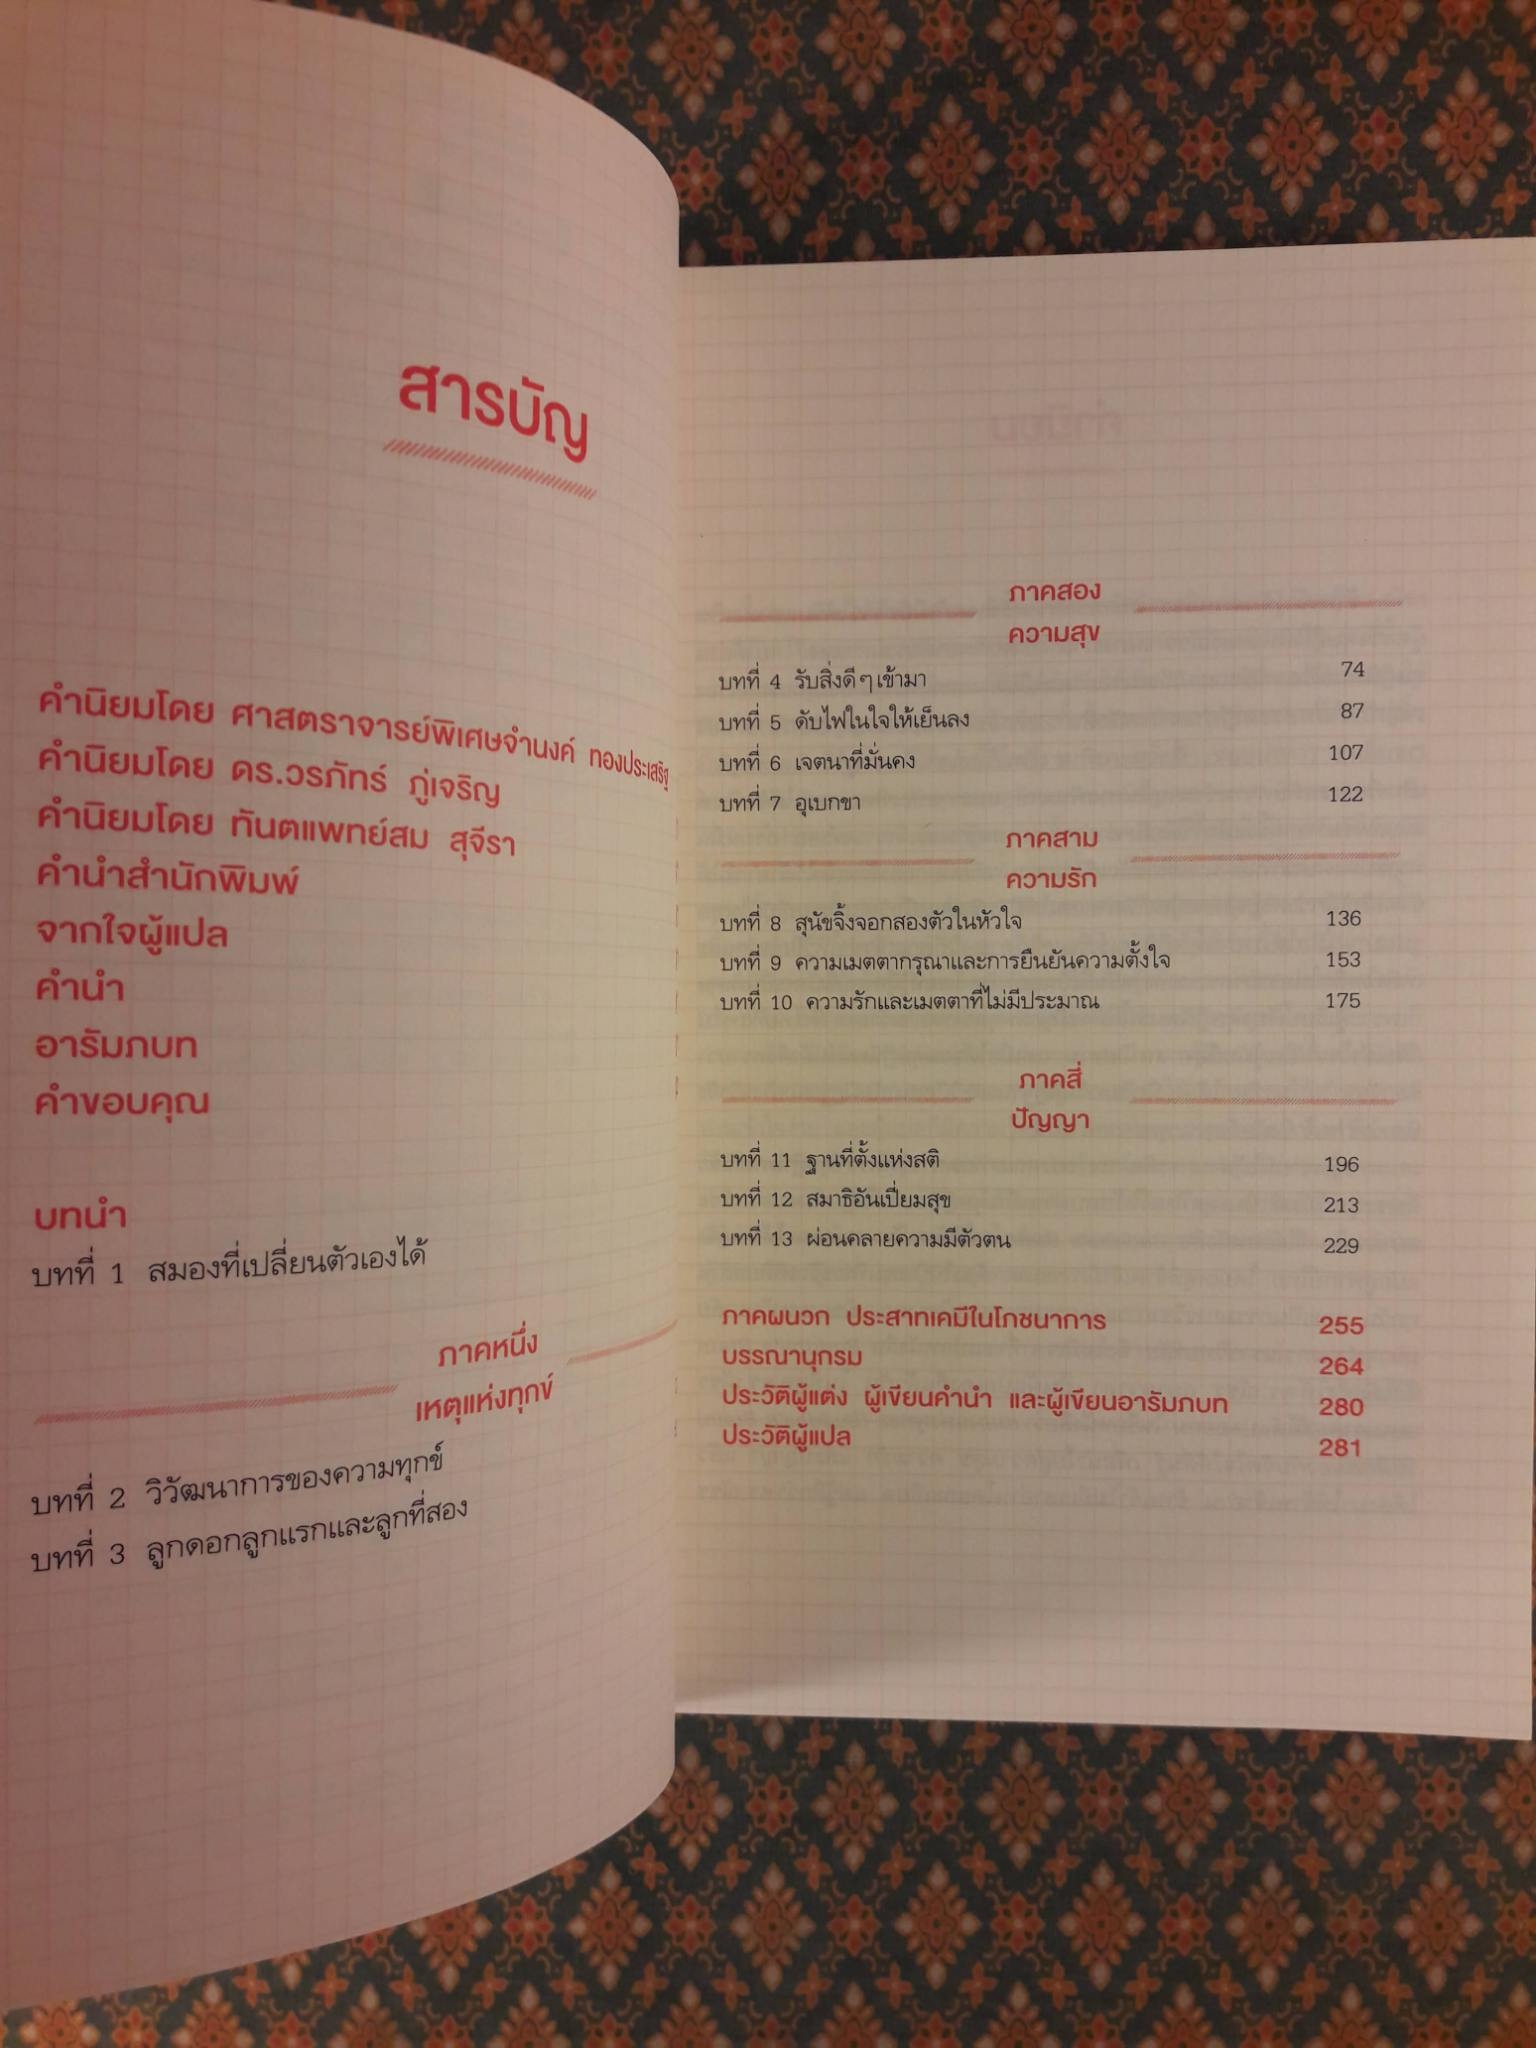 สารบัญ
คำนิยมโดย ศาสตราจารย์พิเศษจำนงค์ ทองประเสริฐ
คำนิยมโดย ดร.วรภัทร์ ภู่เจริญ
คำนิยมโดย ทันตแพทย์สม สุจีรา
คำนำสำนักพิมพ์
จากใจผู้แปล
คำนำ
อารัมภบท
คำขอบคุณ
บทนำ
บทที่ 1 สมองที่เปลี่ยนตัวเองได้
ภาคหนึ่ง
เหตุแห่งทุกข์
บทที่ 2 วิวัฒนาการของความทุกข์
บทที่ 3 ลูกดอกลูกแรกและลูกที่สอง
ภาคสอง
ความสุข
บทที่ 4 รับสิ่งดีๆ เข้ามา 74
บทที่ 5 ดับไฟในใจให้เย็นลง 87
บทที่ 6 เจตนาที่มั่นคง 107
บทที่ 7 อุเบกขา 122
ภาคสาม
ความรัก
บทที่ 8 สุนัขจิ้งจอกสองตัวในหัวใจ 136
บทที่ 9 ความเมตตากรุณาและการยืนยันความตั้งใจ 153
บทที่ 10 ความรักและเมตตาที่ไม่มีประมาณ 175
ภาคสี่
ปัญญา
บทที่ 11 ฐานที่ตั้งแห่งสติ 196
บทที่ 12 สมาธิอันเปี่ยมสุข 213
บทที่ 13 ผ่อนคลายความมีตัวตน 229
ภาคผนวก ประสาทเคมีในโภชนาการ 255
บรรณานุกรม 264
ประวัติผู้แต่ง ผู้เขียนคำนำ และผู้เขียนอารัมภบท 280
ประวัติผู้แปล 281